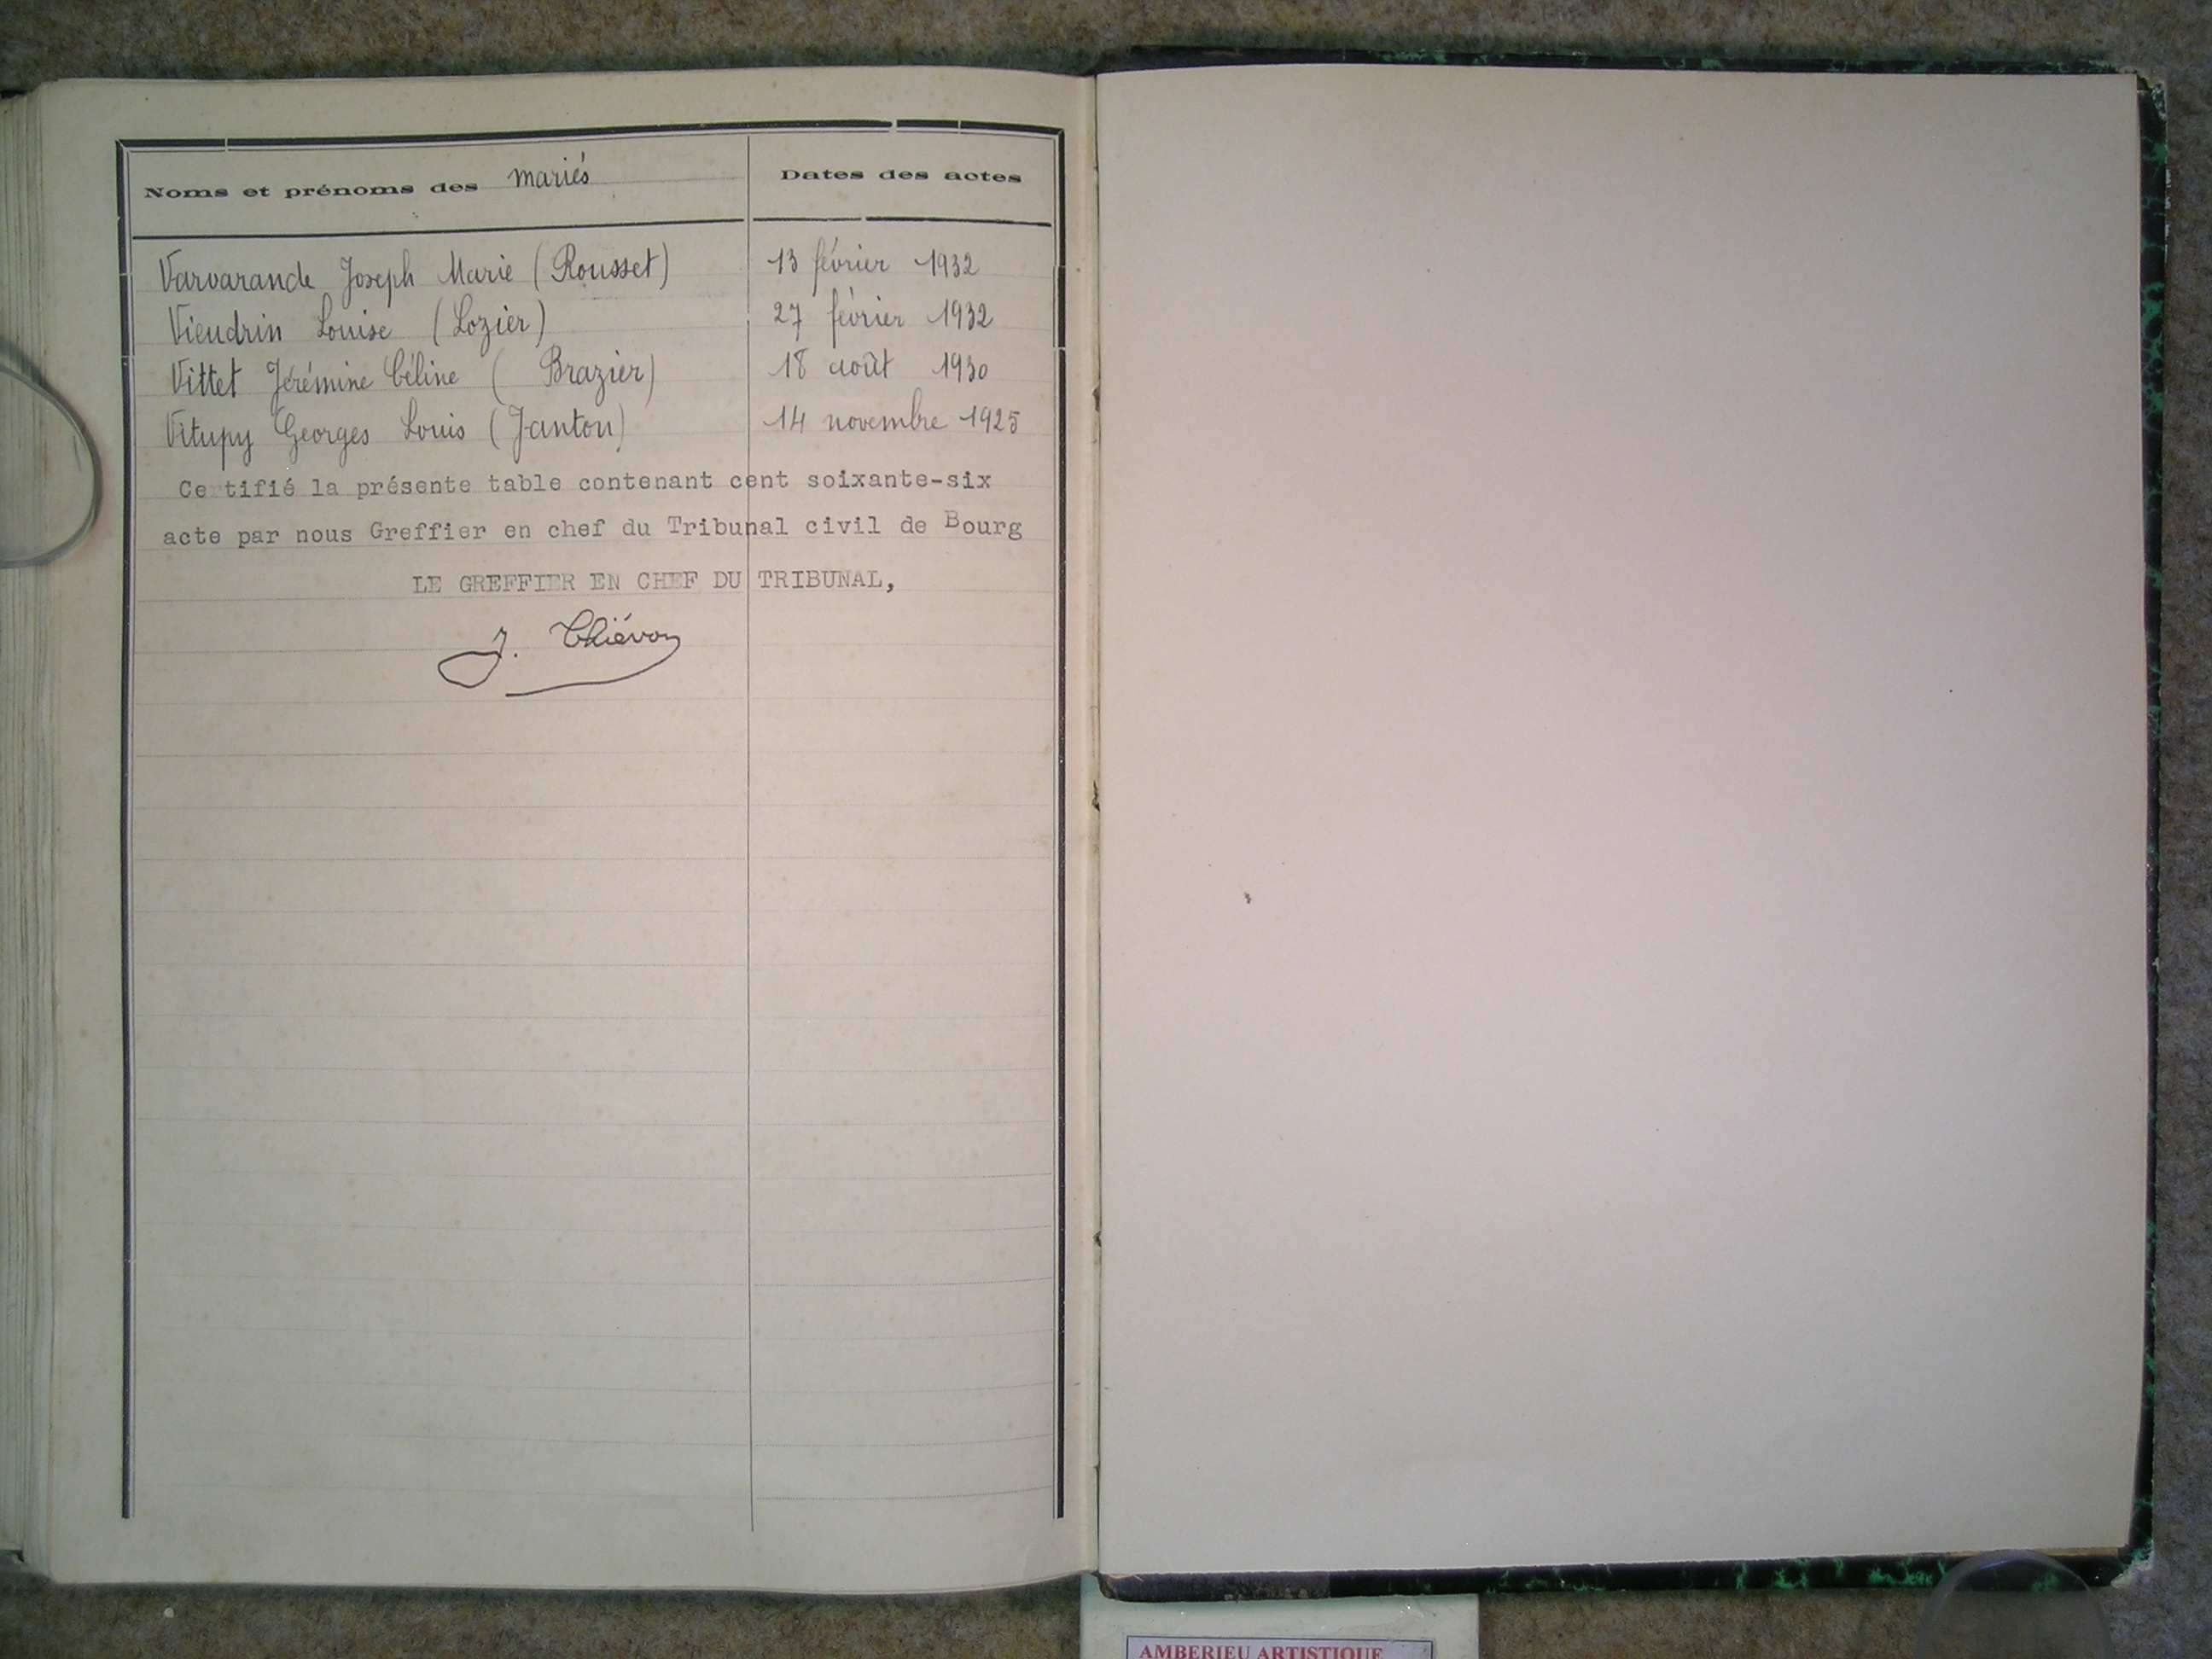 Noms et prénoms des mariés Dates des actes
Varvarande Joseph Marie (Rousset) 13 février 1932
Vieudrin Louise (Lozier) 27 février 1932
Vittet Jérémine Céline ( Brazier) 18 août 1930
Vitupy Georges Louis (Janton) 14 novembre 1925
Certifié la présente table contenant cent soixante-six
acte par nous Greffier en chef du Tribunal civil de Bourg
LE GREFFIER EN CHEF DU TRIBUNAL,
J. Thiévon
AMBERIEU ARTISTIQUE